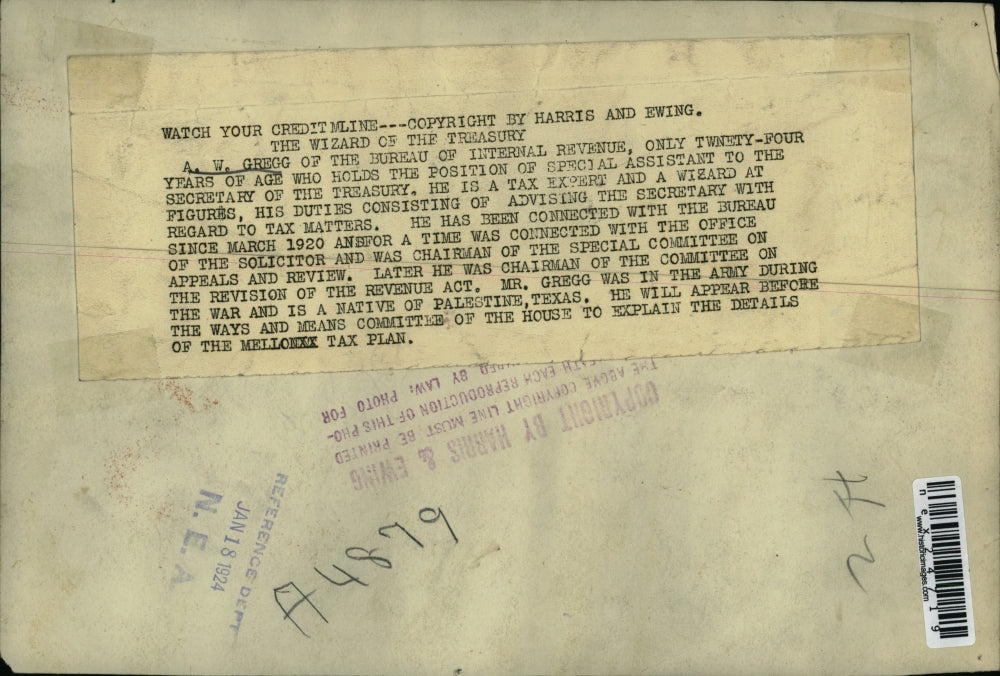 WATCH YOUR CREDITMLINE---COPYRIGHT BY HARRIS AND EWING.
THE WIZARD OF THE TREASURY
A. W. GREGG OF THE BUREAU OF INTERNAL REVENUE, ONLY TWNETY-FOUR
YEARS OF AGE WHO HOLDS THE POSITION OF SPECIAL ASSISTANT TO THE
SECRETARY OF THE TREASURY. HE IS A TAX EXPERT AND A WIZARD AT
FIGURES, HIS DUTIES CONSISTING OF ADVISING THE SECRETARY WITH
REGARD TO TAX MATTERS. HE HAS BEEN CONNECTED WITH THE BUREAU
SINCE MARCH 1920 ANSFOR A TIME WAS CONNECTED WITH THE OFFICE
OF THE SOLICITOR AND WAS CHAIRMAN OF THE SPECIAL COMMITTEE ON
APPEALS AND REVIEW. LATER HE WAS CHAIRMAN OF THE COMMITTEE ON
THE REVISION OF THE REVENUE ACT. MR. GREGG WAS IN THE ARMY DURING
THE WAR AND IS A NATIVE OF PALESTINE,TEXAS. HE WILL APPEAR BEFORE
THE WAYS AND MEANS COMMITTEE OF THE HOUSE TO EXPLAIN THE DETAILS
OF THE MELLONXX TAX PLAN.
COPYRIGHT BY HARRIS & EWING
THE ABOVE COPYRIGHT LINE MUST BE PRINTED
WITH EACH REPRODUCTION OF THIS PHO-
BY LAW. PHOTO FOR
REFERENCE DEPT
JAN 18 1924
N. E. A
A4879
nex24719
www.historicimages.com